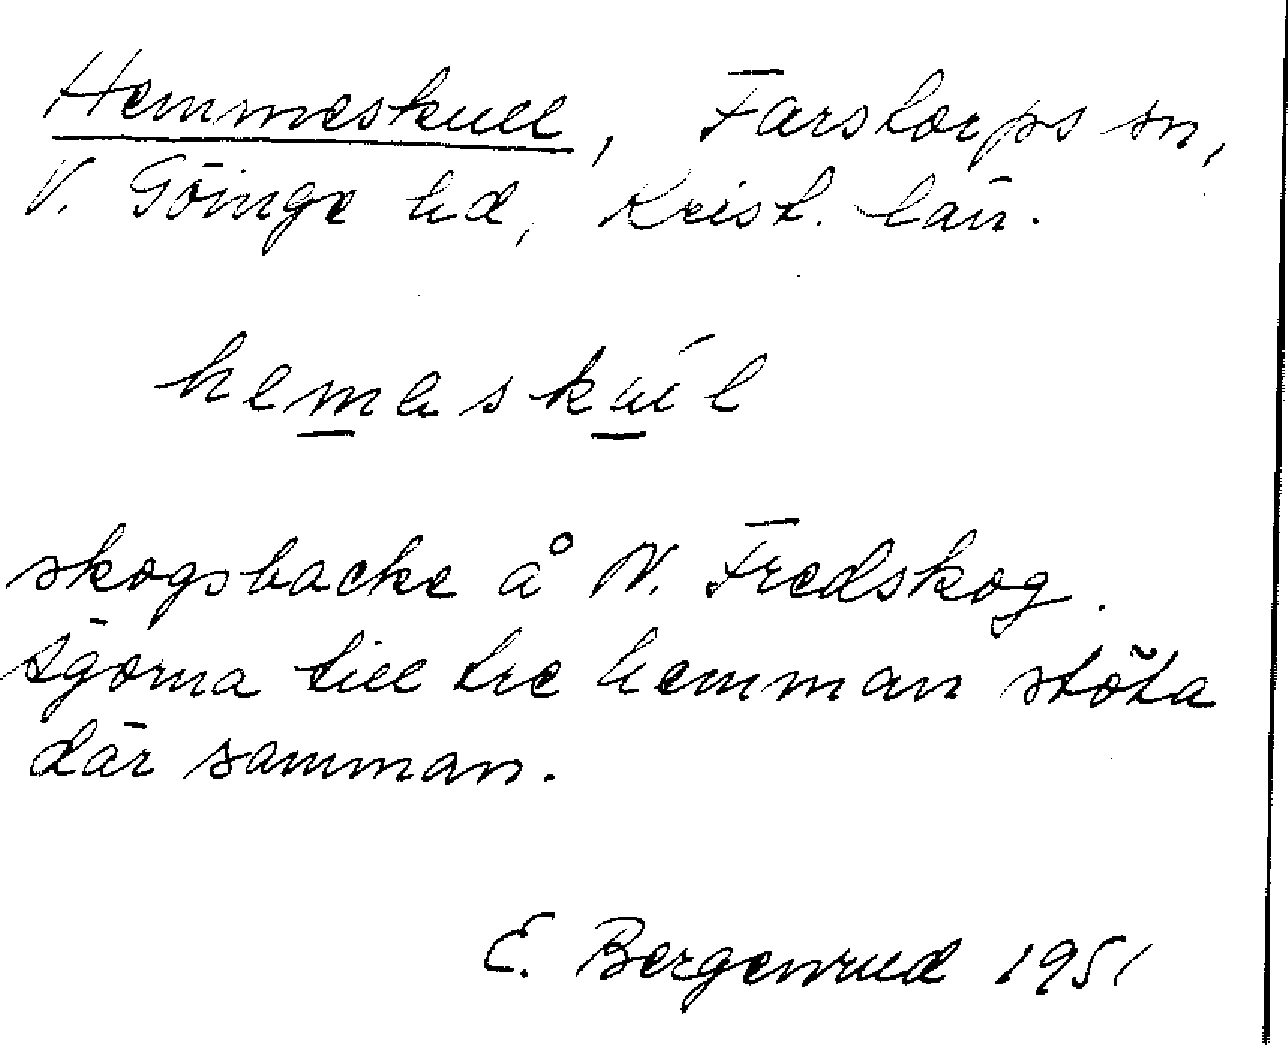 Hemmeskull, Farstorps sn,
V. Göinge hd, Krist. län.
hemaskúl
skogsbacke å N. Fredskog.
Ägorna till tre hemman stöta
där samman.
E. Bergenrud 1951